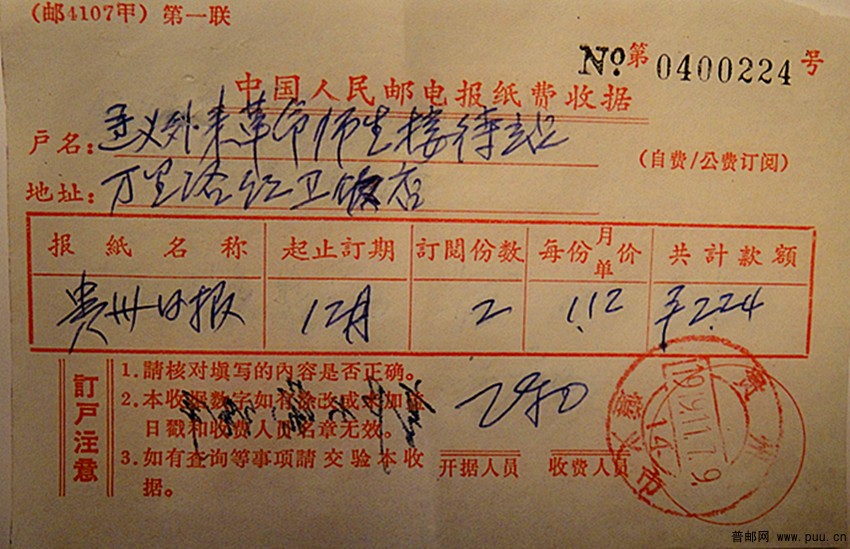 (邮4107甲) 第一联
No. 第 0400224 号
中国人民邮电报纸费收据
户名: 遵义外来革命师生接待站
(自费/公费订阅)
地址: 万里路红卫饭店
报紙名称 起止訂期 訂閲份数 每份月单价 共計款額
贵州日报 12月 2 1.12 2.24
訂戶注意
1.請核对填写的內容是否正确。
2.本收据数字如有涂改或未加盖
日戳和收费人员名章无效。
3.如有查询等事项請交验本收
据。
开据人员 收费人员
贵州
遵义市
普邮网 www.puu.cn